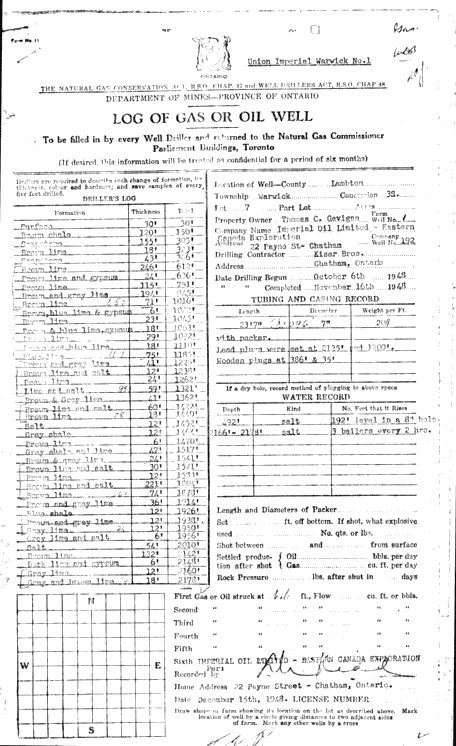 Form No. 11
Union Imperial Warwick No.1
ONTARIO
THE NATURAL GAS CONSERVATION ACT, R.S.O. CHAP. 47 and WELL DRILLERS ACT, R.S.O. CHAP 48
DEPARTMENT OF MINES—PROVINCE OF ONTARIO
LOG OF GAS OR OIL WELL
To be filled in by every Well Driller and returned to the Natural Gas Commissioner
Parliament Buildings, Toronto
(If desired, this information will be treated as confidential for a period of six months)
Drillers are required to describe each change of formation, its
thickness, colour and hardness; and save samples of every
five feet drilled.
DRILLER'S LOG
Formation Thickness Total
Surface 30' 30'
Brown shale 120' 150'
Soapstone 155' 305'
Brown lime 18' 323'
Soapstone 43' 366'
Brown lime 246' 612'
Brown lime and gypsum 24' 636'
Brown lime 115' 751'
Brown and gray lime 194' 945'
Brown lime 71' 1016'
Brown, blue lime & gypsum 6'
Brown lime 23' 1045'
& blue lime, gypsum 18' 1063'
29' 1092'
and blue lime 18' 1110'
75' 1185'
and gray lime
12' 1238'
24' 1262'
Lime and salt 59' 1321'
Brown & Gray lime 41' 1362'
Brown lime and salt 60' 1422'
Brown lime 18' 1440'
Salt 12' 1452'
Gray shale 12' 1464'
Brown lime 6' 1470'
Gray shale and lime 47' 1517'
Brown & gray lime 24' 1541'
Brown lime and salt 30' 1571'
Brown lime 12' 1583'
Brown lime and salt 221' 1804'
Brown lime 74' 1878'
Brown and gray lime 36' 1914'
Blue shale 12' 1926'
Brown and gray lime 12' 1938'
Gray lime 12' 1950'
Gray lime and salt 6' 1956'
Salt 54' 2010'
Brown lime 132' 2142'
Dark lime and gypsum 6' 2148'
Gray lime 12' 2160'
Gray and brown lime 18' 2178'
Location of Well—County Lambton
Township Warwick Concession 3S.
Lot 7 Part Lot Acres
Property Owner Thomas C. Gavigan Farm Well No. 1
Company Name Imperial Oil Limited - Eastern
Canada Exploration
Address 22 Payne St- Chatham Company Well No. 192
Drilling Contractor Kiser Bros.
Address Chatham, Ontario
Date Drilling Began October 6th 1948
" " Completed November 16th 1948
TUBING AND CASING RECORD
Length Diameter Weight per Ft.
7" 20#
with packer.
Lead plugs were set at 2135' and 1200'.
Wooden plugs at 386' & 35'
If a dry hole, record method of plugging in above space
WATER RECORD
Depth Kind No. Feet that it Rises
492' salt 192' level in a 8" hole
2166'- 2178' salt 3 bailers every 2 hrs.
Length and Diameters of Packer
Set ft. off bottom. If shot, what explosive
used No. qts. or lbs.
Shot between and from surface
Settled production after shot { Oil bbls. per day
Gas cu. ft. per day
Rock Pressure lbs. after shut in days
First Gas or Oil struck at ft., Flow cu. ft. or bbls.
Second " " " "
Third " " " "
Fourth " " " "
Fifth " " " "
Sixth IMPERIAL OIL LIMITED - EASTERN CANADA EXPLORATION
Per:
Recorded by
Home Address 22 Payne Street - Chatham, Ontario.
Date December 15th, 1948. LICENSE NUMBER
Draw shape of farm showing its location on the lot as described above. Mark
location of well by a circle giving distances to two adjacent sides
of farm. Mark any other wells by a cross
N
W E
S